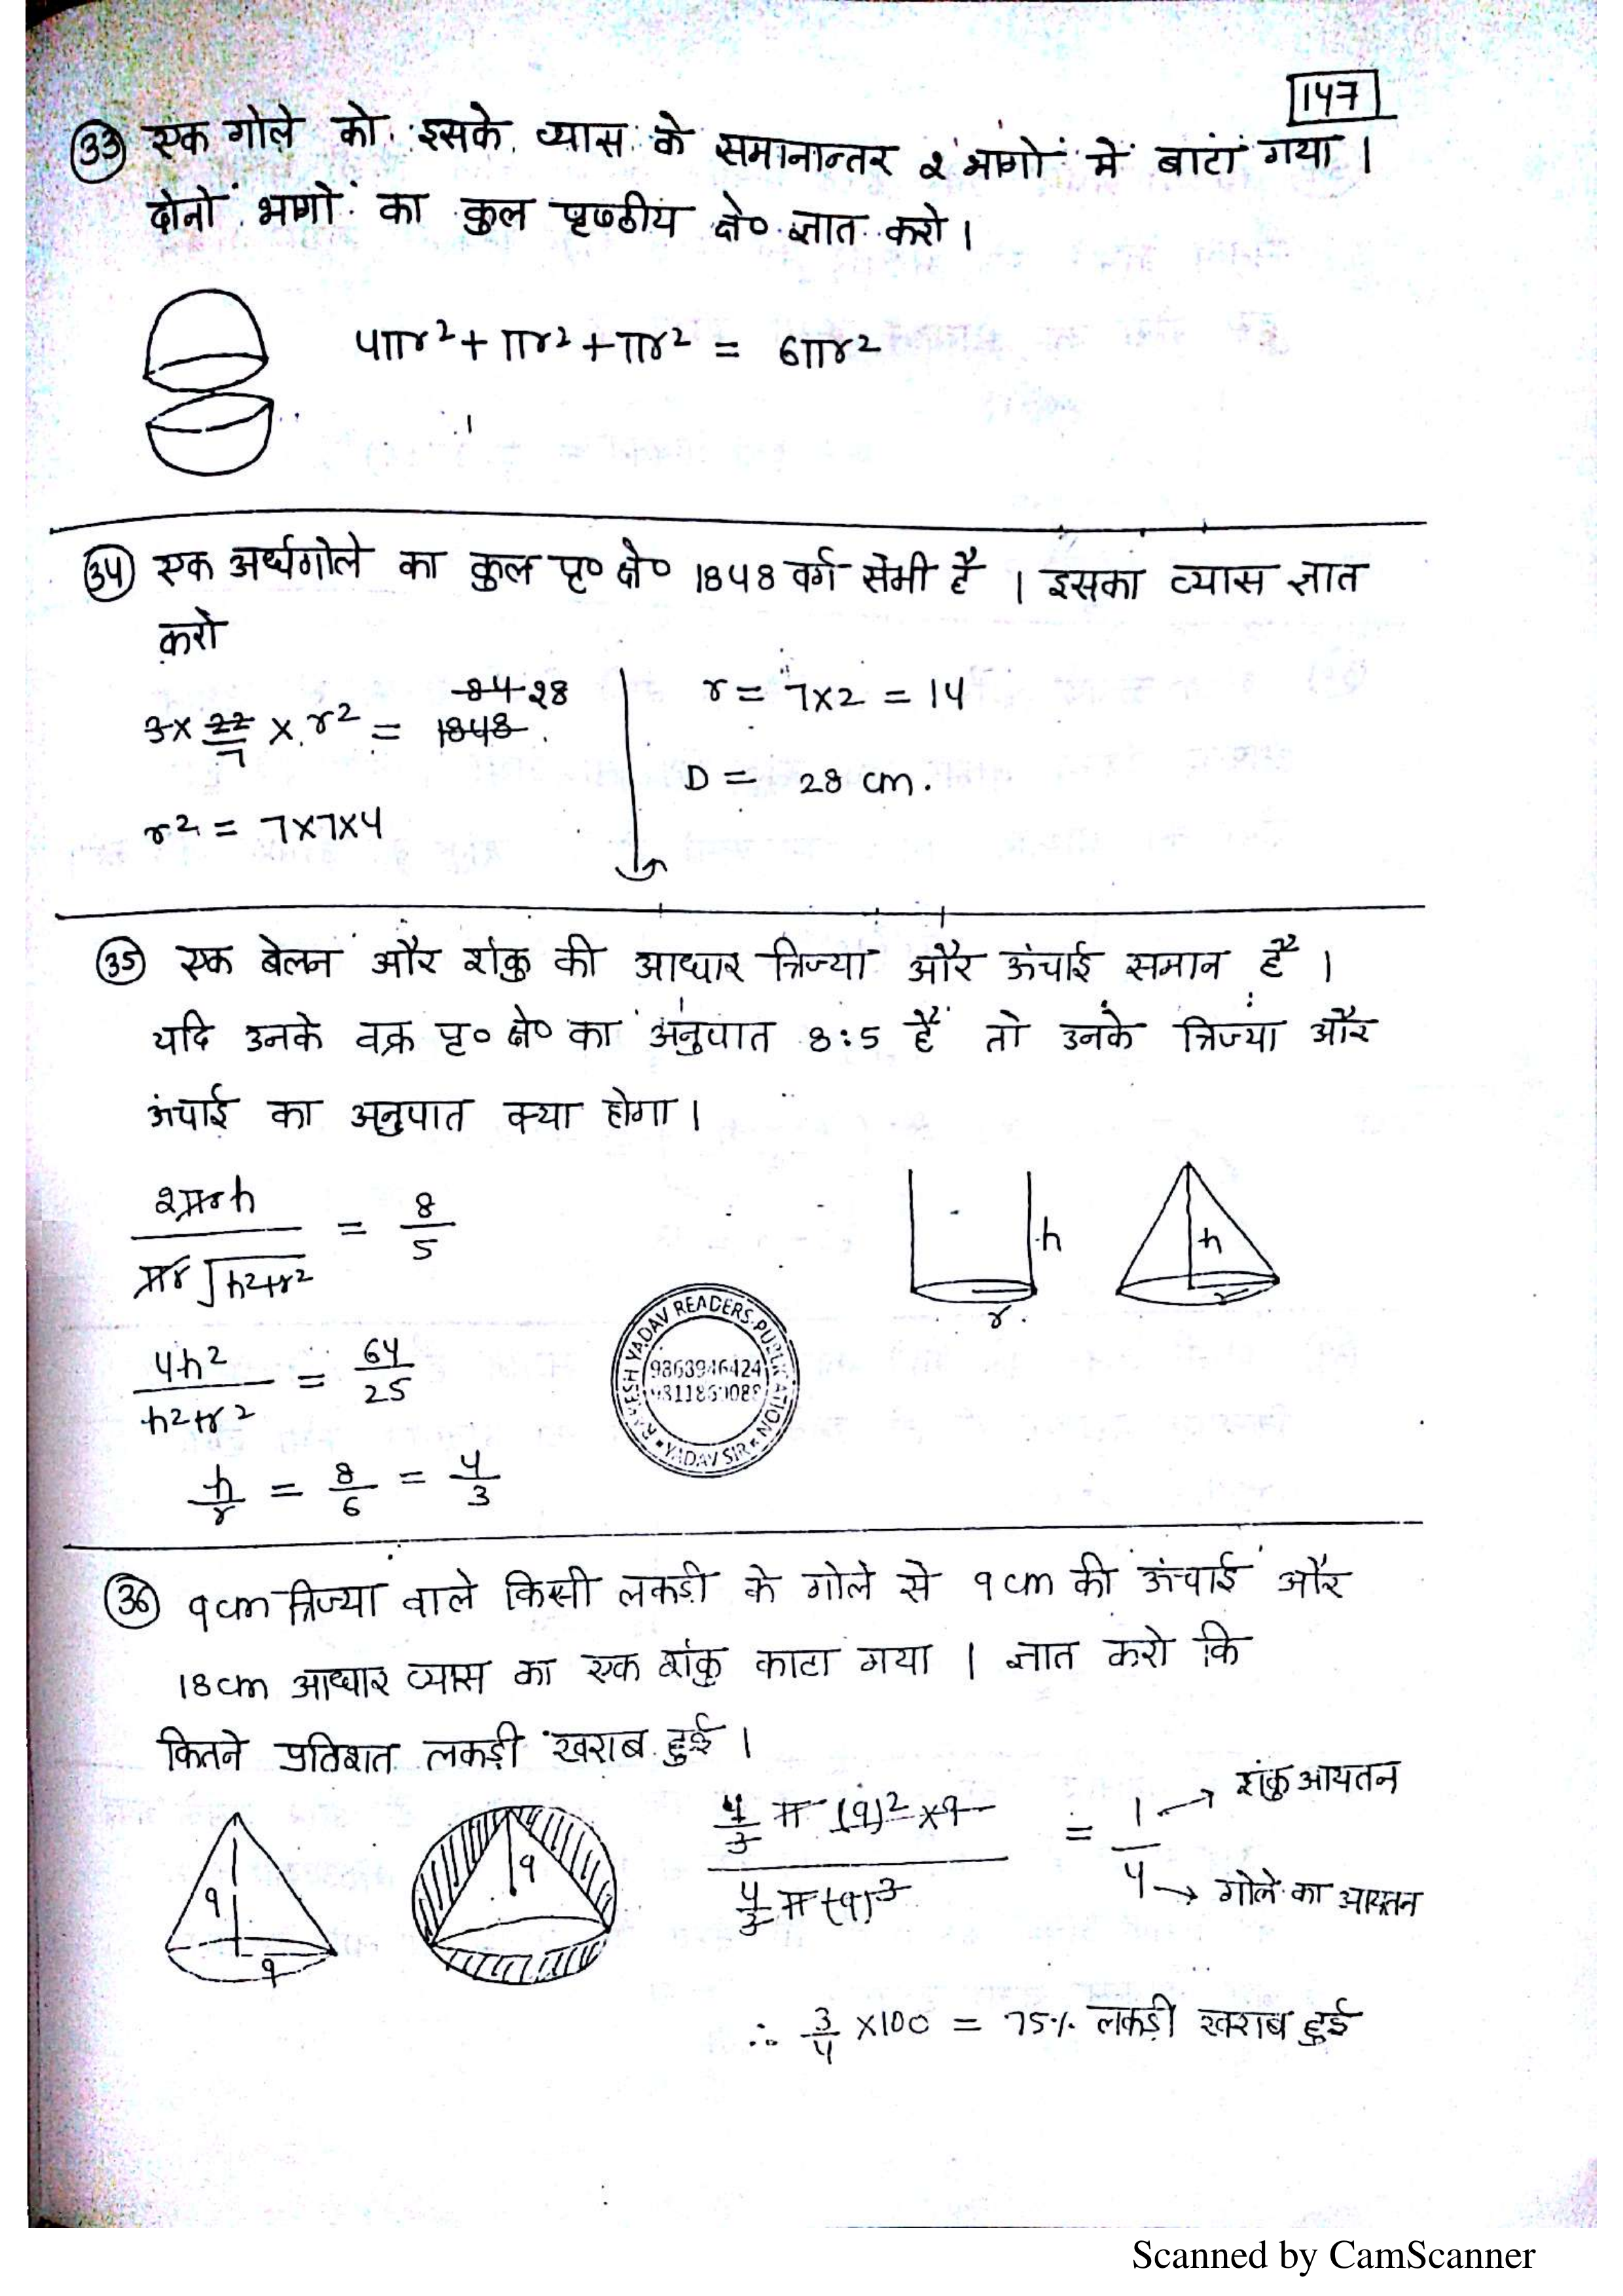 147
(33) एक गोले को इसके व्यास के समानान्तर 2 भागों में बाटां गया ।
दोनों भागों का कुल पृष्ठीय क्षे० ज्ञात करो ।
4πr² + πr² + πr² = 6πr²
(34) एक अर्धगोले का कुल पृ० क्षे० 1848 वर्ग सेमी है । इसका व्यास ज्ञात
करो
84 28
3 × 22/7 × r² = 1848
r² = 7×7×4
r = 7×2 = 14
D = 28 cm.
(35) एक बेलन और शंकु की आधार त्रिज्या और ऊंचाई समान है ।
यदि उनके वक्र पृ० क्षे० का अनुपात 8:5 है तो उनके त्रिज्या और
ऊंचाई का अनुपात क्या होगा ।
2πrh / πr√h²+r² = 8/5
h
r
h
r
4h² / h²+r² = 64/25
h/r = 8/6 = 4/3
RAKESH YADAV READERS PUBLICATION
YADAV SIR
(36) 9cm त्रिज्या वाले किसी लकड़ी के गोले से 9cm की ऊंचाई और
18cm आधार व्यास का एक शंकु काटा गया । ज्ञात करो कि
कितने प्रतिशत लकड़ी खराब हुई ।
9
9
9
4/3 π (9)² × 9 / 4/3 π (9)³ = 1/4
→ शंकु आयतन
→ गोले का आयतन
∴ 3/4 ×100 = 75% लकड़ी खराब हुई
Scanned by CamScanner